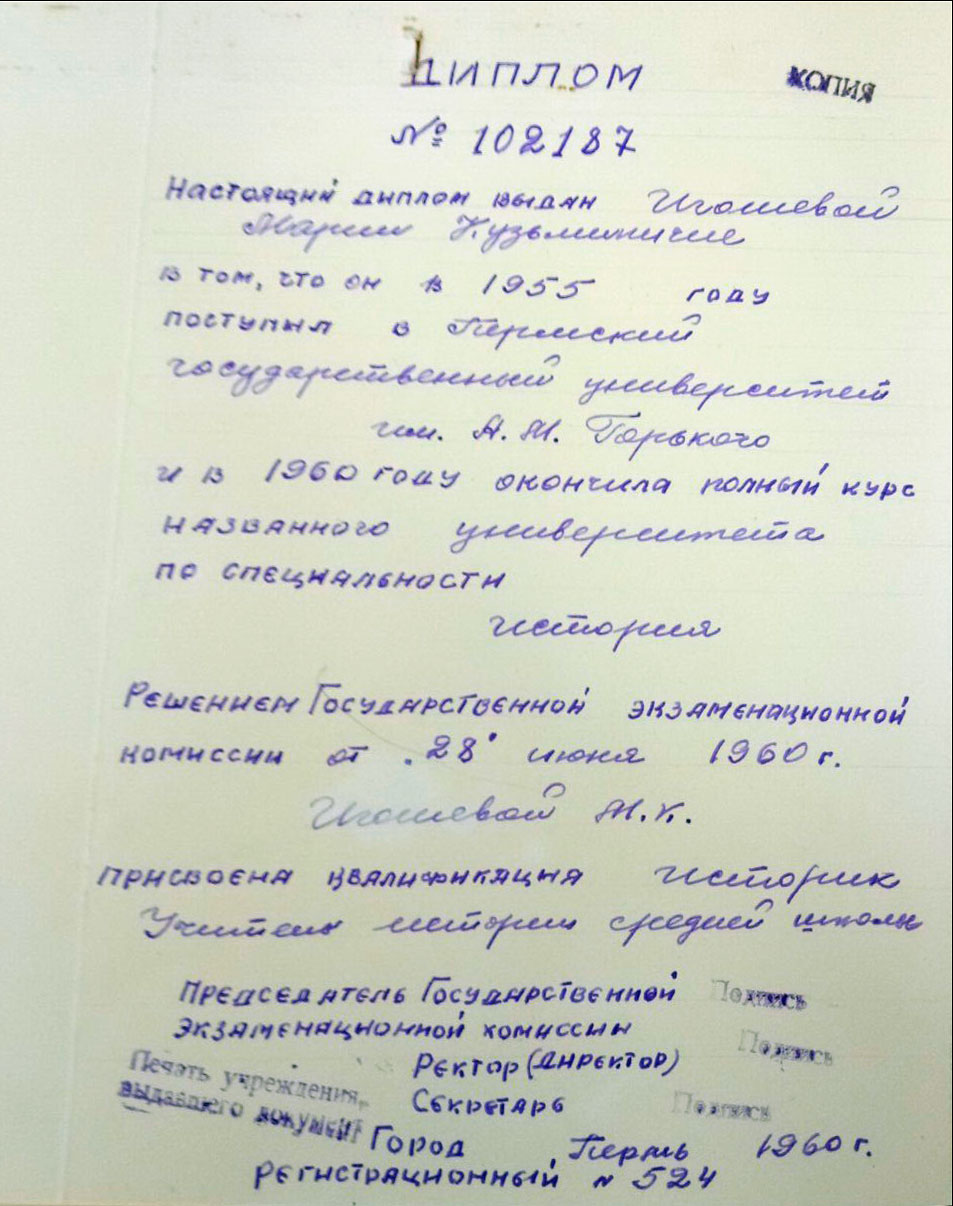 ДИПЛОМ
КОПИЯ
№ 102187
Настоящий диплом выдан Игошевой
Марии Кузьминичне
в том, что он в 1955 году
поступил в Пермский
государственный университет
им. А.М. Горького
и в 1960 году окончила полный курс
названного университета
по специальности
история
Решением Государственной экзаменационной
комиссии от "28" июня 1960 г.
Игошевой М.К.
присвоена квалификация историк
Учитель истории средней школы
Председатель Государственной Подпись
экзаменационной комиссии
Подпись
Ректор (директор)
Печать учреждения,
выдавшего документ
Секретарь Подпись
Город Пермь 1960 г.
регистрационный № 524